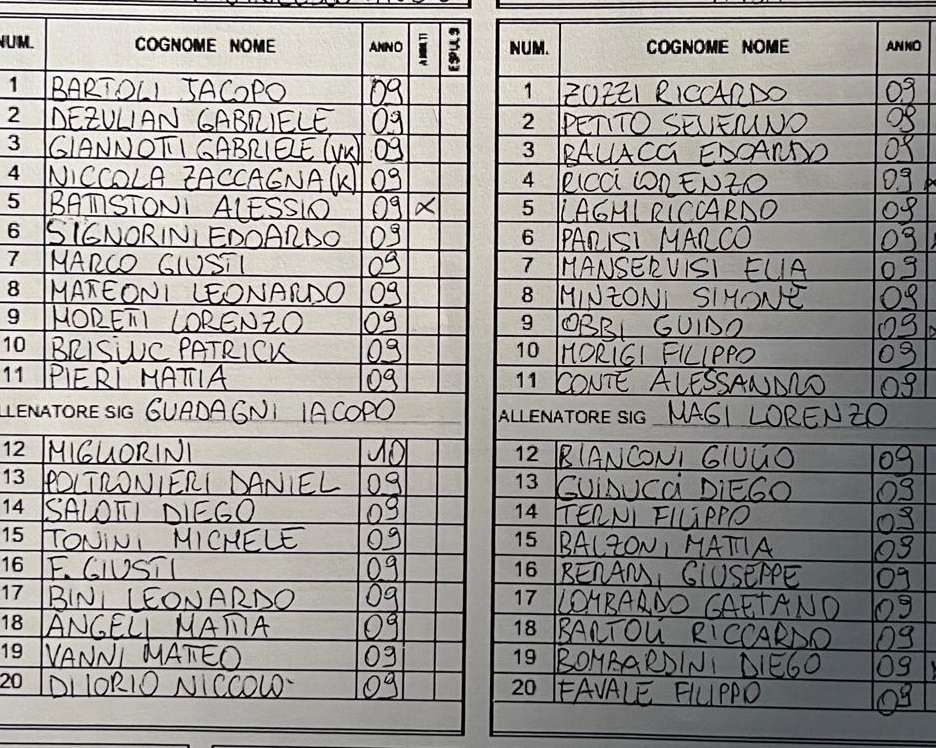 NUM. COGNOME NOME ANNO AMMONITI ESPULS
1 BARTOLI JACOPO 09
2 DEZULIAN GABRIELE 09
3 GIANNOTTI GABRIELE (VK) 09
4 NICCOLA ZACCAGNA (K) 09
5 BATTISTONI ALESSIO 09 X
6 SIGNORINI EDOARDO 09
7 MARCO GIUSTI 09
8 MATEONI LEONARDO 09
9 MORETTI LORENZO 09
10 PATRICK 09
11 PIERI MATTIA 09
LLENATORE SIG GUADAGNI IACOPO
12 MIGLIORINI 10
13 POLTRONIERI DANIEL 09
14 SALOTTI DIEGO 09
15 TONINI MICHELE 09
16 F. GIUSTI 09
17 BINI LEONARDO 09
18 ANGELI MATTIA 09
19 VANNI MATTEO 09
20 DI IORIO NICCOLO' 09
NUM. COGNOME NOME ANNO
1 ZUZZI RICCARDO 09
2 PETITO SEVERINO 09
3 EDOARDO 09
4 RICCI LORENZO 09
5 LAGHI RICCARDO 09
6 PARISI MARCO 09
7 MANSERVISI ELIA 09
8 MINZONI SIMONE 09
9 OBBI GUIDO 09
10 MORIGI FILIPPO 09
11 CONTE ALESSANDRO 09
ALLENATORE SIG MAGI LORENZO
12 BIANCONI GIULIO 09
13 GUIDUCCI DIEGO 09
14 TERNI FILIPPO 09
15 BALZONI MATTIA 09
16 BERARDI GIUSEPPE 09
17 LOMBARDO GAETANO 09
18 BARTOLI RICCARDO 09
19 BOMBARDINI DIEGO 09
20 FAVALE FILIPPO 09